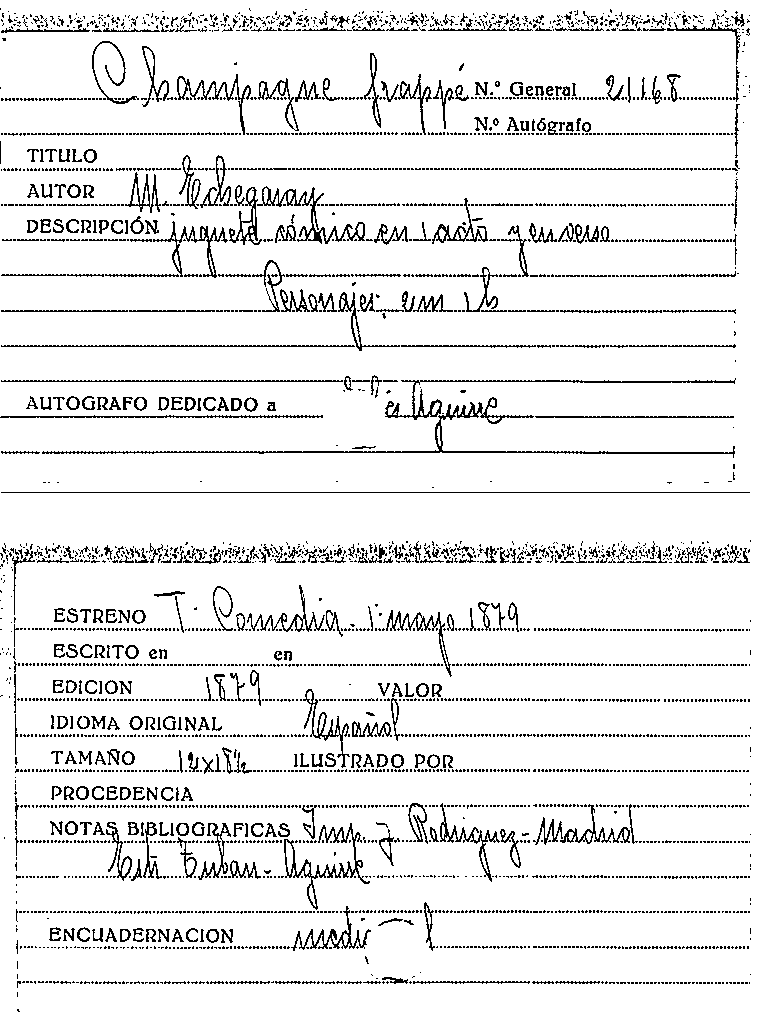 Champagne frappé N.º General 21168
N.º Autógrafo
TITULO
AUTOR M. Echegaray
DESCRIPCIÓN juguete cómico en 1 acto y en verso
Personajes, 2m 1h
AUTOGRAFO DEDICADO a Aguirre
ESTRENO T. Comedia. 1º mayo 1879
ESCRITO en en
EDICION 1879 VALOR
IDIOMA ORIGINAL Español
TAMAÑO 12x18½ ILUSTRADO POR
PROCEDENCIA
NOTAS BIBLIOGRAFICAS Imp. J. Rodriguez-Madrid
Aguirre
ENCUADERNACION